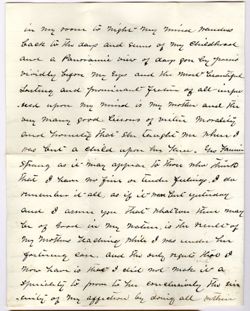 in my room to night My mind wanders
back to the days and scenes of my Childhood
and a Panoramic view of days gon by passes
vividly before my eyes and the most beautiful
lasting and prominent picture of all impressed
upon my mind is my mother and the
very many good lessons of
and honesty that she taught me when I
was but a child upon her knee.
Strang as it may appear to those who think
that I have no finer or tender feelings I do
remember it all, as if it was but yesterday
and I assure you that whatever there may
be of Good in my nature, is the result of
my Mothers Teaching while I was under her
fostering care. and the only regret that I
now have is that I did not make it a
to prove to her conclusively the sincerity
of my affection by doing all within